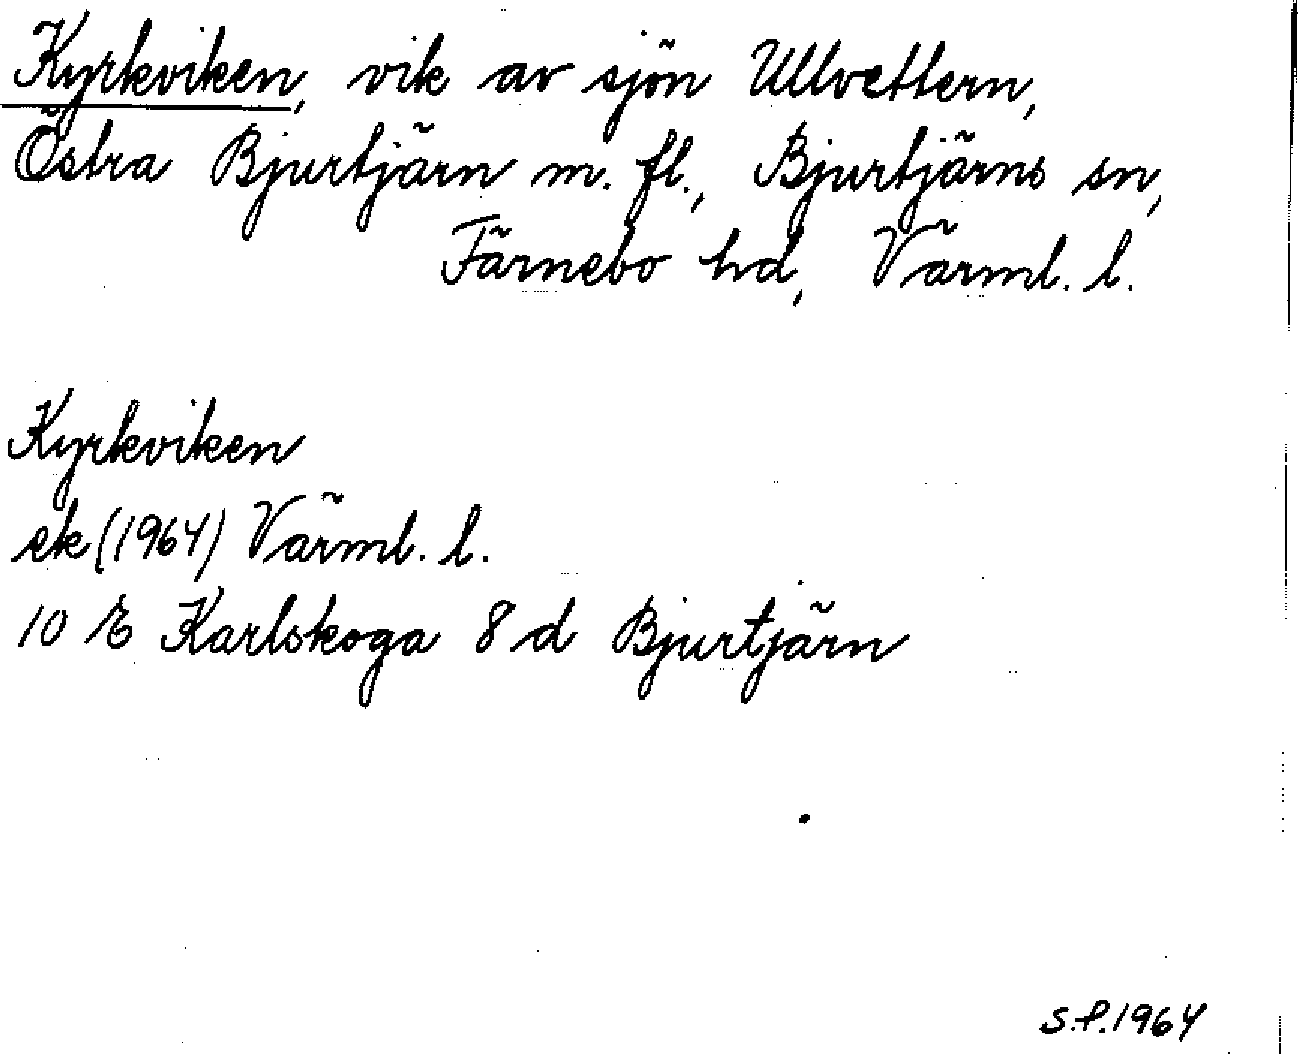 Kyrkviken, vik av sjön Ullvettern,
Östra Bjurtjärn m. fl., Bjurtjärns sn,
Färnebo hd, Värml. l.
Kyrkviken
ek (1964) Värml. l.
10 E Karlskoga 8 d Bjurtjärn
S.P. 1964